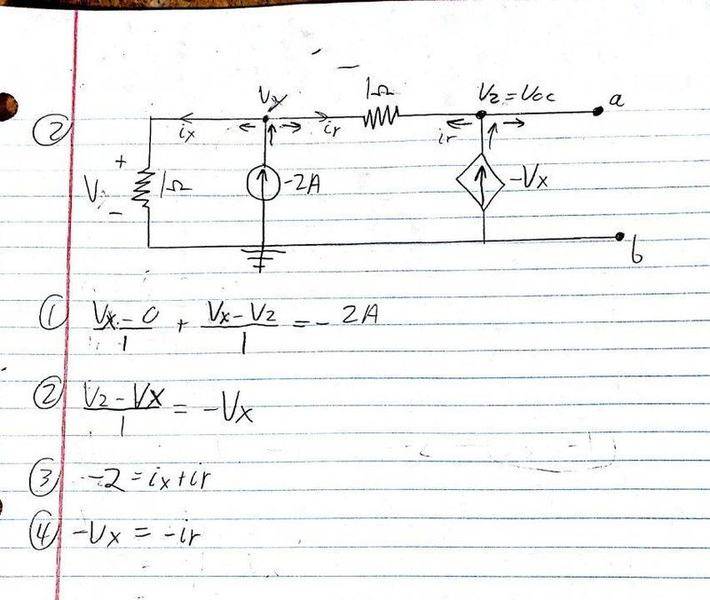 ②
Vx
1Ω
V2=Voc
a
ix
ir
ir
+
V
-
1Ω
-2A
-Vx
b
① (Vx-0)/1 + (Vx-V2)/1 = -2A
② (V2-Vx)/1 = -Vx
③ -2=ix+ir
④ -Vx = -ir